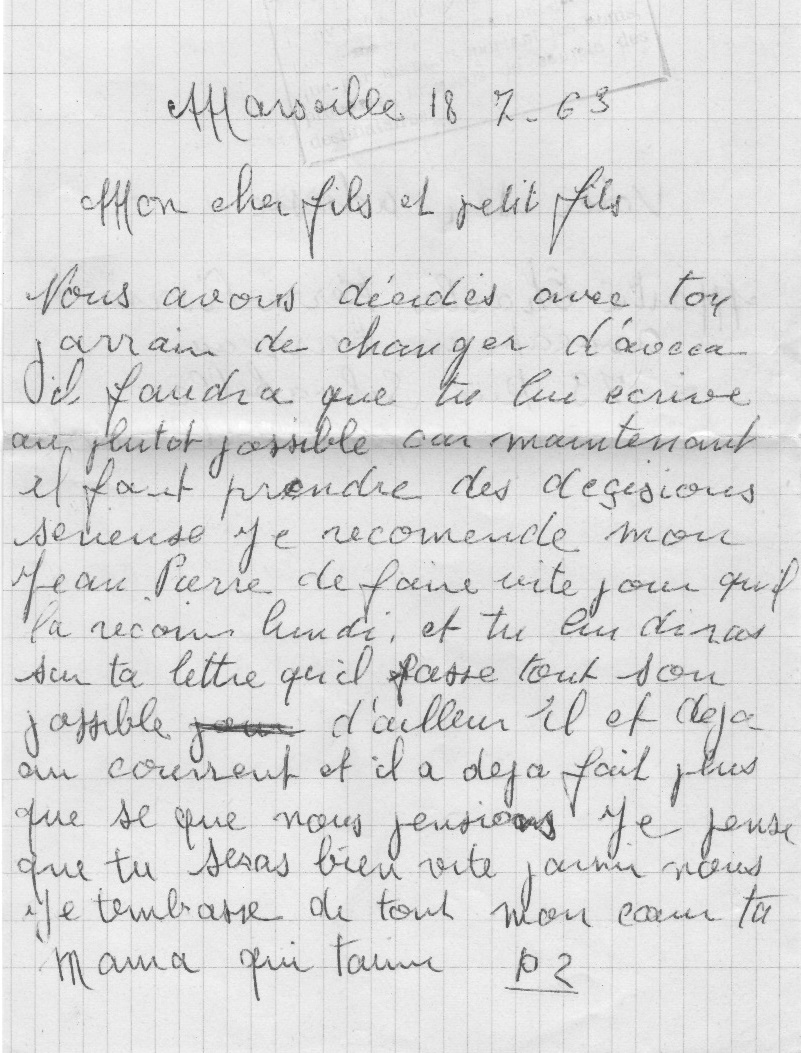 Marseille 18 7-63
Mon cher fils et petit fils
Nous avons décidés avec ton
parrain de changer d'avoca
il faudra que tu lui ecrive
au plutot possible car maintenant
il faut prendre des decisions
serieuse Je recomende mon
Jean Pierre de faire vite pour qu'il
la recoive lundi, et tu lui diras
sur ta lettre qu'il fasse tout son
possible d'ailleur il et deja
au courrent et il a deja fait plus
que se que nous pensions Je pense
que tu seras bien vite parmi nous
Je tembrasse de tout mon cœur ta
Mama qui taime P2